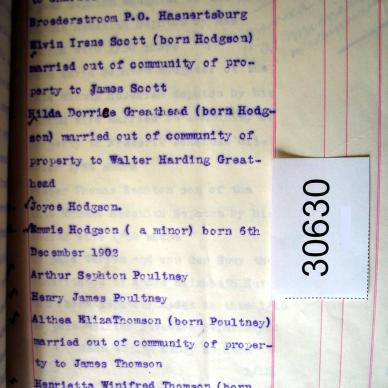 Broederstroom P.O. Hasnertsburg
Elvin Irene Scott (born Hodgson)
married out of community of pro-
perty to James Scott
Hilda Dorrise Greathead (born Hodg-
son) married out of community of
property to Walter Harding Great-
head
Joyce Hodgson.
Emmie Hodgson ( a minor) born 6th
December 1902
Arthur Sephton Poultney
Henry James Poultney
Althea ElizaThomson (born Poultney)
married out of community of proper-
ty to James Thomson
Henrietta Winifred Thomson (born
30630